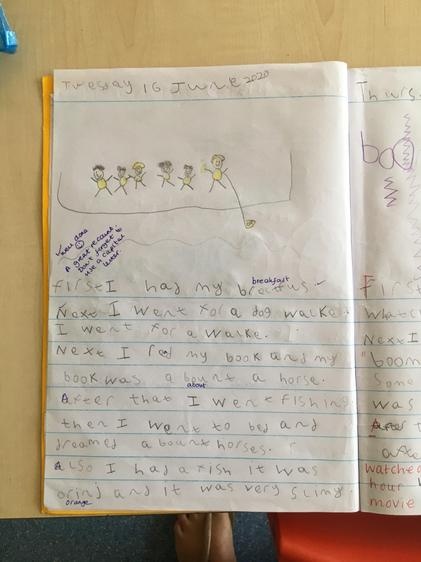 Tuesday 16 June 2020
Thurs
boo
well done
A great recount.
Don't forget to
use a capital
letter.
breakfast
first I had my breatfus.
Next I went for a dog walke.
I went for a walke.
Next I red my book and my
book was a bount a horse.
about
After that I went fishing
then I went to bed and
dreamed a bount horses.
Also I had a fish it was
orinj and it was very slimy.
orange
First
Whatch
Next I
"boom
Some
was
After t
watched
hour
movie